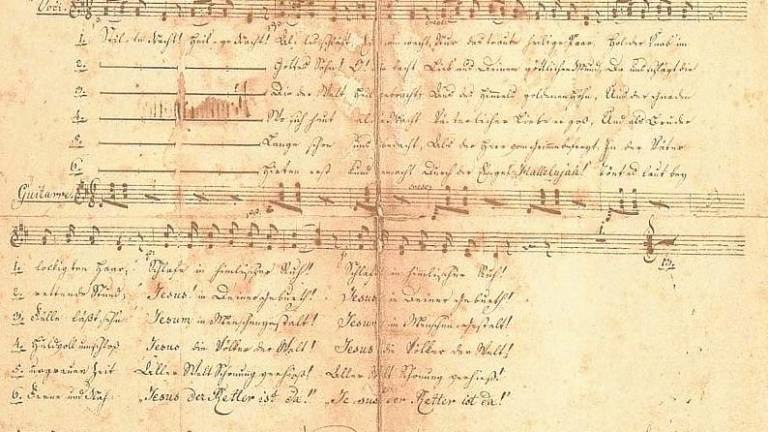 Voci.
1. Stil-le Nacht! Heil-ige Nacht! Alles schläft; einsam wacht, Nur das traute heilige Paar. Holder Knab' im
2. Gottes Sohn! O! wie lacht Lieb' aus Deinem göttlichen Mund, Da uns schlägt die
3. Die der Welt Heil gebracht; Aus des Himmels goldenen Höhn, Uns der Gnaden
4. Wo sich heut alle Macht Väterlicher Liebe ergoß, Und als Bruder
5. Lange schon uns bedacht, Als der Herr vom Grimme befreyt, In der Väter
6. Hirten erst kund gemacht Durch der Engel Hallelujah! Tönt es laut bey
Guitarre.
cresc:
1. lockigten Haar; Schlafe in himlischer Ruh! Schlafe in himlischer Ruh!
2. rettende Stund; Jesus! in Deiner Geburth! Jesus! in Deiner Geburth!
3. Fülle läßt sehn Jesum in Menschengestalt! Jesum in Menschengestalt!
4. Huldvoll umschloß Jesus die Völker der Welt! Jesus die Völker der Welt!
5. urgrauer Zeit Aller Welt Schonung verhieß! Aller Welt Schonung verhieß!
6. Ferne und Nah: "Jesus der Retter ist da!" "Jesus der Retter ist da!"